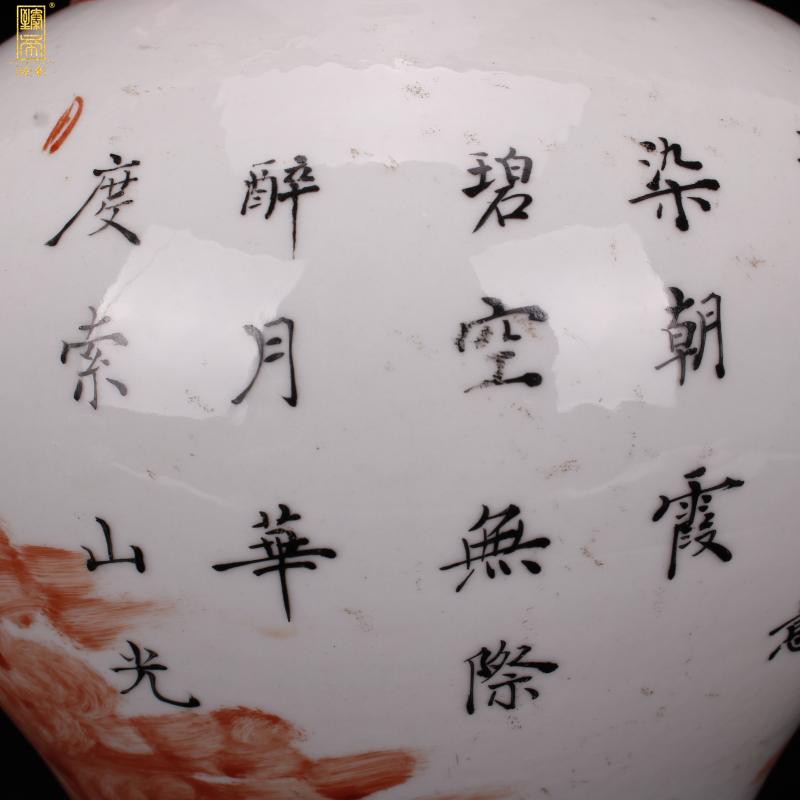 染朝霞
碧空無際
醉月華
度索山光